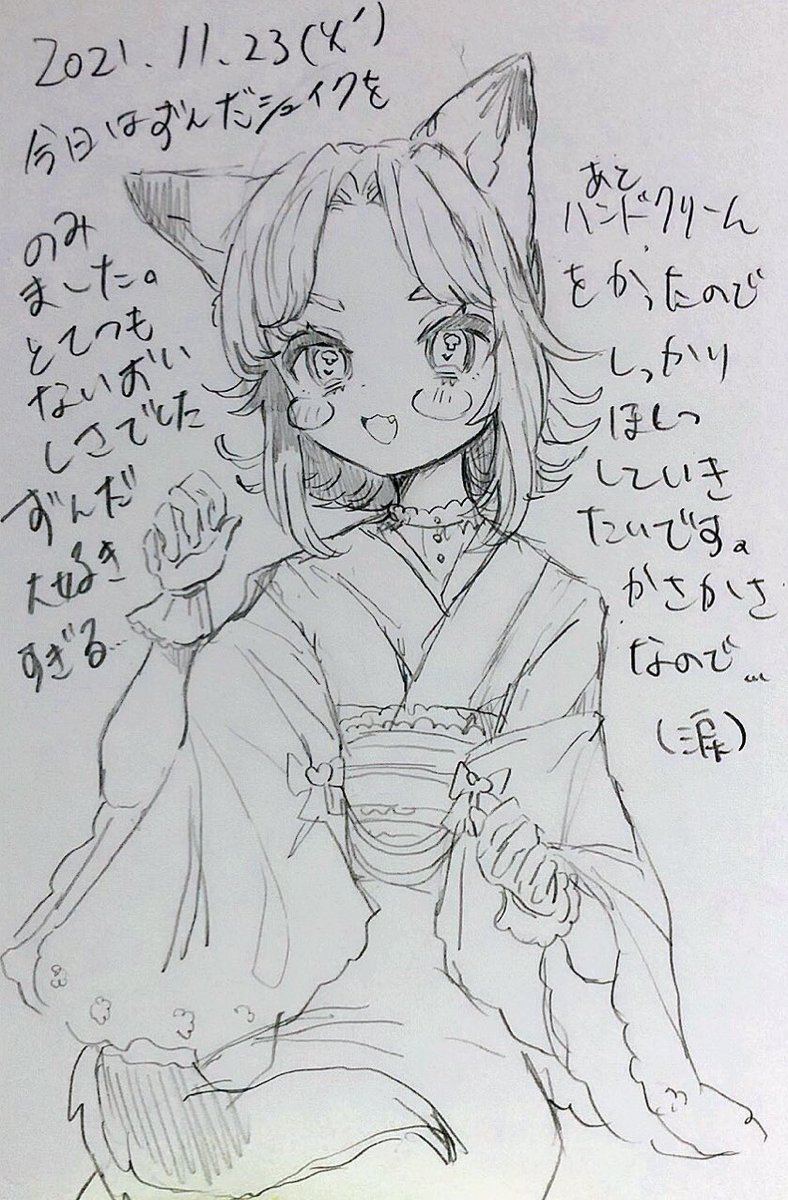 2021.11.23(火)
今日はずんだシェイクを
のみ
ました。
とてつも
ないおい
しさでした
ずんだ
大好き
すぎる…
あと
ハンドクリーム
をかったので
しっかり
ほしつ
していき
たいです。
かさかさ
なので…
(涙)